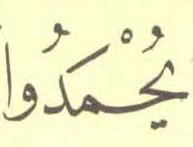 يُحْمَدُوا